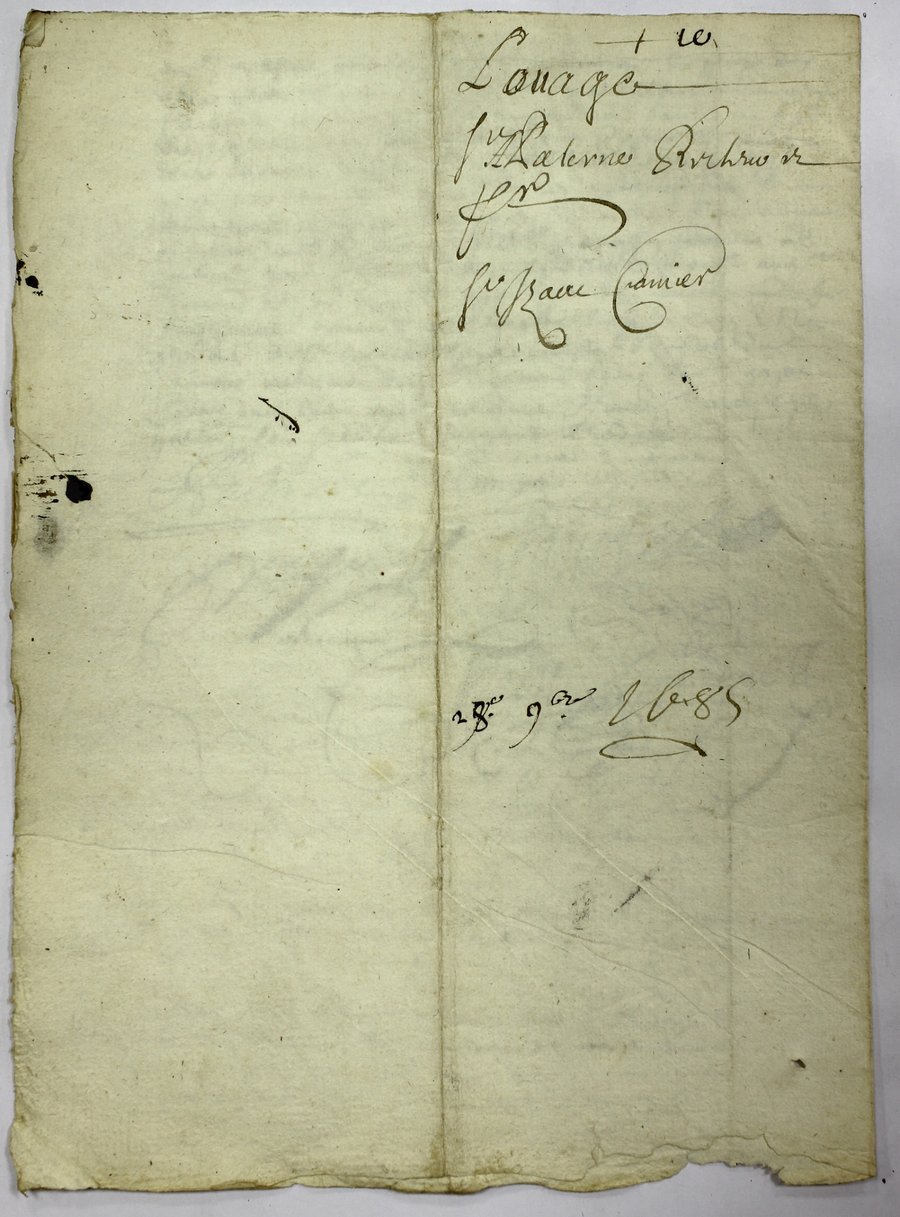 + 10
Louage
Sr Materne
Sr Isaac Camier
28e 9bre 1685